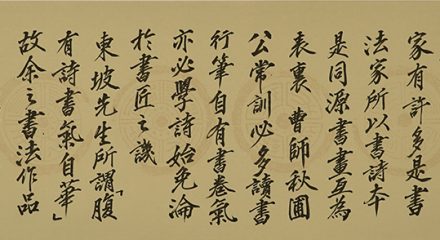 家有許多是書
法家所以書詩本
是同源書畫互為
表裏 曹師秋圃
公常訓必多讀書
行筆自有書卷氣
亦必學詩始免淪
於書匠之譏
東坡先生所謂「腹
有詩書氣自華」
故余之書法作品